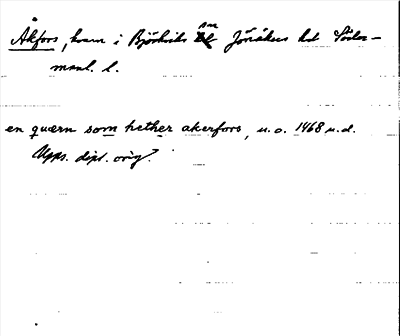 Åkfors, kvarn i Björkviks sn Jönåkers hd Söder-
manl. l.
en quærn som hether akerfors, u.o. 1468 u.d.
Upps. dipl. orig.